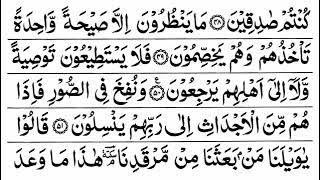 كُنْتُمْ صٰدِقِيْنَ ﴿۴۸﴾ مَا يَنْظُرُوْنَ اِلَّا صَيْحَةً وَّاحِدَةً
تَاْخُذُهُمْ وَهُمْ يَخِصِّمُوْنَ ﴿۴۹﴾ فَلَا يَسْتَطِيْعُوْنَ تَوْصِيَةً
وَّلَاۤ اِلٰۤى اَهْلِهِمْ يَرْجِعُوْنَ ﴿۵۰﴾ وَنُفِخَ فِى الصُّوْرِ فَاِذَا
هُمْ مِّنَ الْاَجْدَاثِ اِلٰى رَبِّهِمْ يَنْسِلُوْنَ ﴿۵۱﴾ قَالُوْا
يٰوَيْلَنَا مَنْۢ بَعَثَنَا مِنْ مَّرْقَدِنَا ۘ هٰذَا مَا وَعَدَ